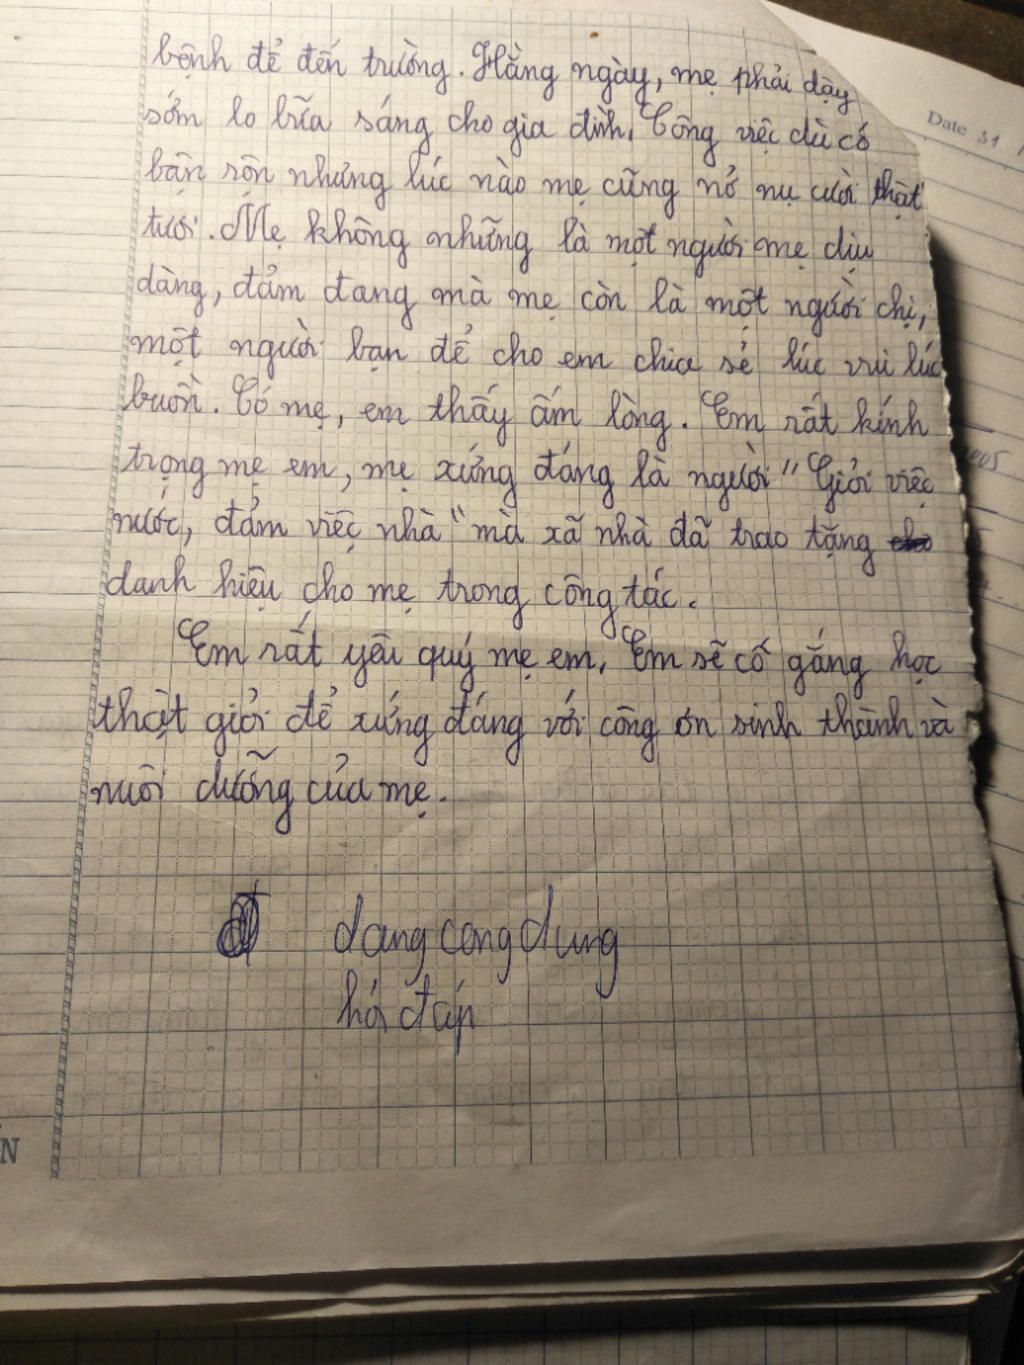 bệnh để đến trường. Hằng ngày, mẹ phải dậy
sớm lo bữa sáng cho gia đình. Công việc dù có
bận rộn nhưng lúc nào mẹ cũng nở nụ cười thật
tươi. Mẹ không những là một người mẹ dịu
dàng, đảm đang mà mẹ còn là một người chị,
một người bạn để cho em chia sẻ lúc vui lúc
buồn. Có mẹ, em thấy ấm lòng. Em rất kính
trọng mẹ em, mẹ xứng đáng là người "Giỏi việc
nước, đảm việc nhà" mà xã nhà đã trao tặng
danh hiệu cho mẹ trong công tác.
Em rất yêu quý mẹ em. Em sẽ cố gắng học
thật giỏi để xứng đáng với công ơn sinh thành và
nuôi dưỡng của mẹ.
dang cong dung
hỏi đáp
Date 31
N